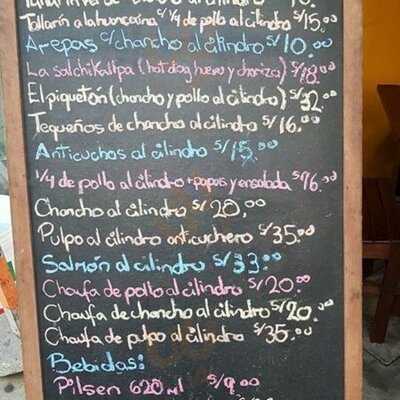 Tallarin a la huancaina c/ 1/4 de pollo al cilindro S/15.00
Arepas c/chancho al cilindro S/10.00
La salchikallpa (hot dog huevo y chorizo) S/18.00
El piquetón (chancho y pollo al cilindro) S/32.00
Tequeños de chancho al cilindro S/16.00
Anticuchos al cilindro S/15.00
1/4 de pollo al cilindro + papas y ensalada S/16.00
Chancho al cilindro S/20.00
Pulpo al cilindro anticuchero S/35.00
Salmón al cilindro S/33.00
Chaufa de pollo al cilindro S/20.00
Chaufa de chancho al cilindro S/20.00
Chaufa de pulpo al cilindro S/35.00
Bebidas:
Pilsen 620 ml S/9.00